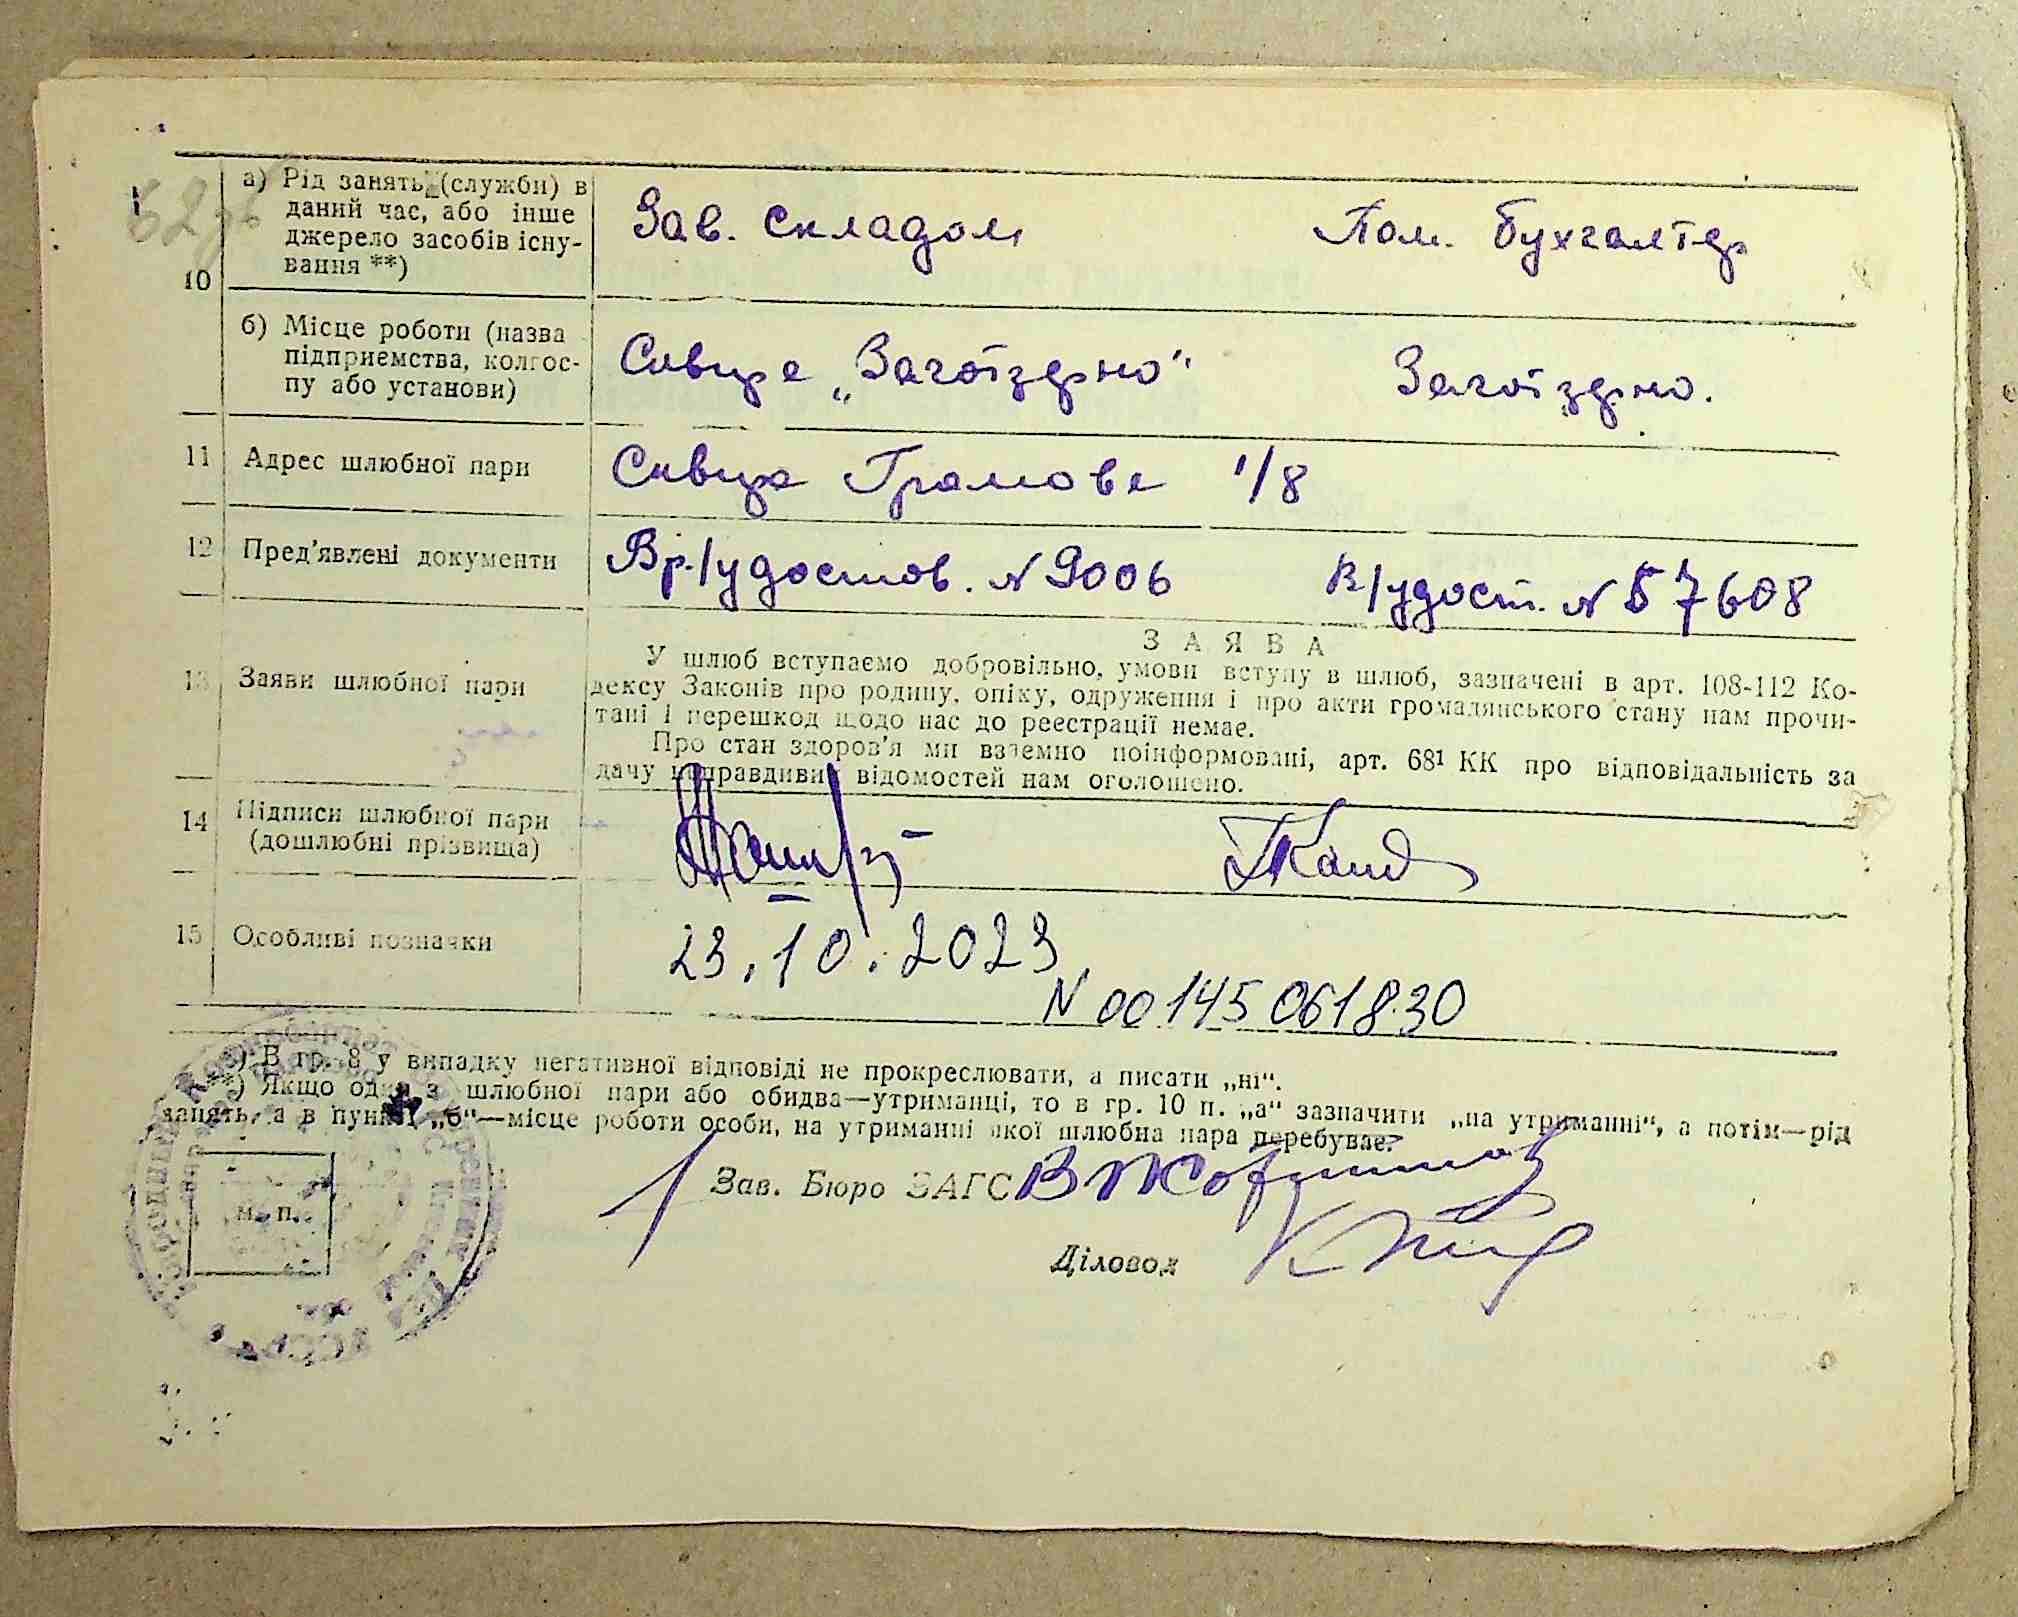 а) Рід занять (служби) в
даний час, або інше
джерело засобів існу-
вання **)
Зав. складом
Пом. бухгалтер
10
б) Місце роботи (назва
підприємства, колгос-
пу або установи)
Сквира „Заготзерно"
Заготзерно.
11 Адрес шлюбної пари
Сквира Громова 1/8
12 Пред'явлені документи
Вр/удостов. N 9006
в/удост. N 57608
13 Заяви шлюбної пари
ЗАЯВА
У шлюб вступаємо добровільно, умови вступу в шлюб, зазначені в арт. 108-112 Ко-
дексу Законів про родину, опіку, одруження і про акти громадянського стану нам прочи-
тані і перешкод щодо нас до реєстрації немає.
Про стан здоров'я ми взаємно поінформовані, арт. 68¹ КК про відповідальність за
дачу неправдивих відомостей нам оголошено.
14 Підписи шлюбної пари
(дошлюбні прізвища)
15 Особливі позначки
23.10.2023
N 00145061830
*) В гр. 8 у випадку негативної відповіді не прокреслювати, а писати „ні".
**) Якщо один з шлюбної пари або обидва—утриманці, то в гр. 10 п. „а" зазначити „на утриманні", а потім—рід
занять, а в пункті „б"—місце роботи особи, на утриманні якої шлюбна пара перебуває.
Зав. Бюро ЗАГС
м. п.
Діловод